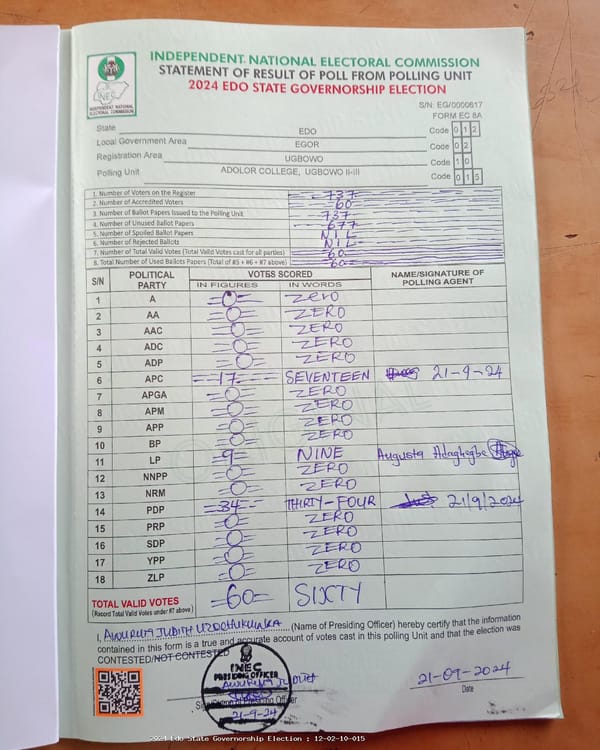 INDEPENDENT NATIONAL ELECTORAL COMMISSION
STATEMENT OF RESULT OF POLL FROM POLLING UNIT
2024 EDO STATE GOVERNORSHIP ELECTION
INEC
INDEPENDENT NATIONAL ELECTORAL COMMISSION
S/N: EG/0000617
FORM EC 8A
State EDO Code 0 1 2
Local Government Area EGOR Code 0 2
Registration Area UGBOWO Code 1 0
Polling Unit ADOLOR COLLEGE, UGBOWO II-III Code 0 1 5
1. Number of Voters on the Register 737
2. Number of Accredited Voters =60=
3. Number of Ballot Papers Issued to the Polling Unit 737
4. Number of Unused Ballot Papers 677
5. Number of Spoiled Ballot Papers NIL
6. Number of Rejected Ballots NIL
7. Number of Total Valid Votes (Total Valid Votes cast for all parties) =60=
8. Total Number of Used Ballots Papers (Total of #5 + #6 + #7 above) =60=
S/N POLITICAL PARTY VOTES SCORED NAME/SIGNATURE OF POLLING AGENT
IN FIGURES IN WORDS
1 A =0= Zero
2 AA =0= ZERO
3 AAC =0= ZERO
4 ADC =0= ZERO
5 ADP =0= ZERO
6 APC =17= SEVENTEEN 21-9-24
7 APGA =0= ZERO
8 APM =0= ZERO
9 APP =0= ZERO
10 BP =0= ZERO
11 LP =9= NINE Augusta Adaghegbe
12 NNPP =0= ZERO
13 NRM =0= ZERO
14 PDP =34= THIRTY-FOUR 21/9/2024
15 PRP =0= ZERO
16 SDP =0= ZERO
17 YPP =0= ZERO
18 ZLP =0= ZERO
TOTAL VALID VOTES =60= SIXTY
(Record Total Valid Votes under #7 above)
I, JUDITH (Name of Presiding Officer) hereby certify that the information
contained in this form is a true and accurate account of votes cast in this polling Unit and that the election was
CONTESTED/NOT CONTESTED
INEC
PRESIDING OFFICER
JUDITH
Officer
21-9-24
21-09-2024
Date
2024 Edo State Governorship Election : 12-02-10-015